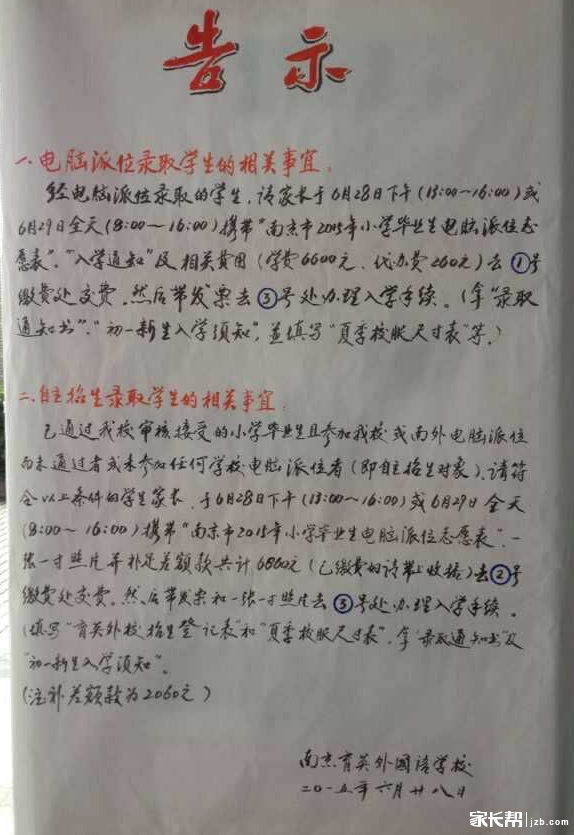 告示
一.电脑派位录取学生的相关事宜:
经电脑派位录取的学生,请家长于6月28日下午(13:00~16:00)或
6月29日全天(8:00~16:00)携带"南京市2015年小学毕业生电脑派位志
愿表"."入学通知"及相关费用(学费6600元.代办费260元)去①号
缴费处交费.然后带发票去③号处办理入学手续.(拿"录取
通知书"."初一新生入学须知",并填写"夏季校服尺寸表"等.)
二.自主招生录取学生的相关事宜:
已通过我校审核接受的小学毕业生且参加我校或南外电脑派位
而未通过者或未参加任何学校电脑派位者(即自主招生对象).请符
合以上条件的学生家长.于6月28日下午(13:00~16:00)或6月29日全天
(8:00~16:00)携带"南京市2015年小学毕业生电脑派位志愿表".一
张一寸照片并补足差额款共计6860元(已缴费的请带上收据)去②号
缴费处交费.然后带发票和一张一寸照片去③号处办理入学手续.
(填写"育英外校招生登记表"和"夏季校服尺寸表".拿"录取通知书"及
"初一新生入学须知".
(注补差额款为2060元)
南京育英外国语学校
二〇一五年六月廿八日
家长帮 jzb.com